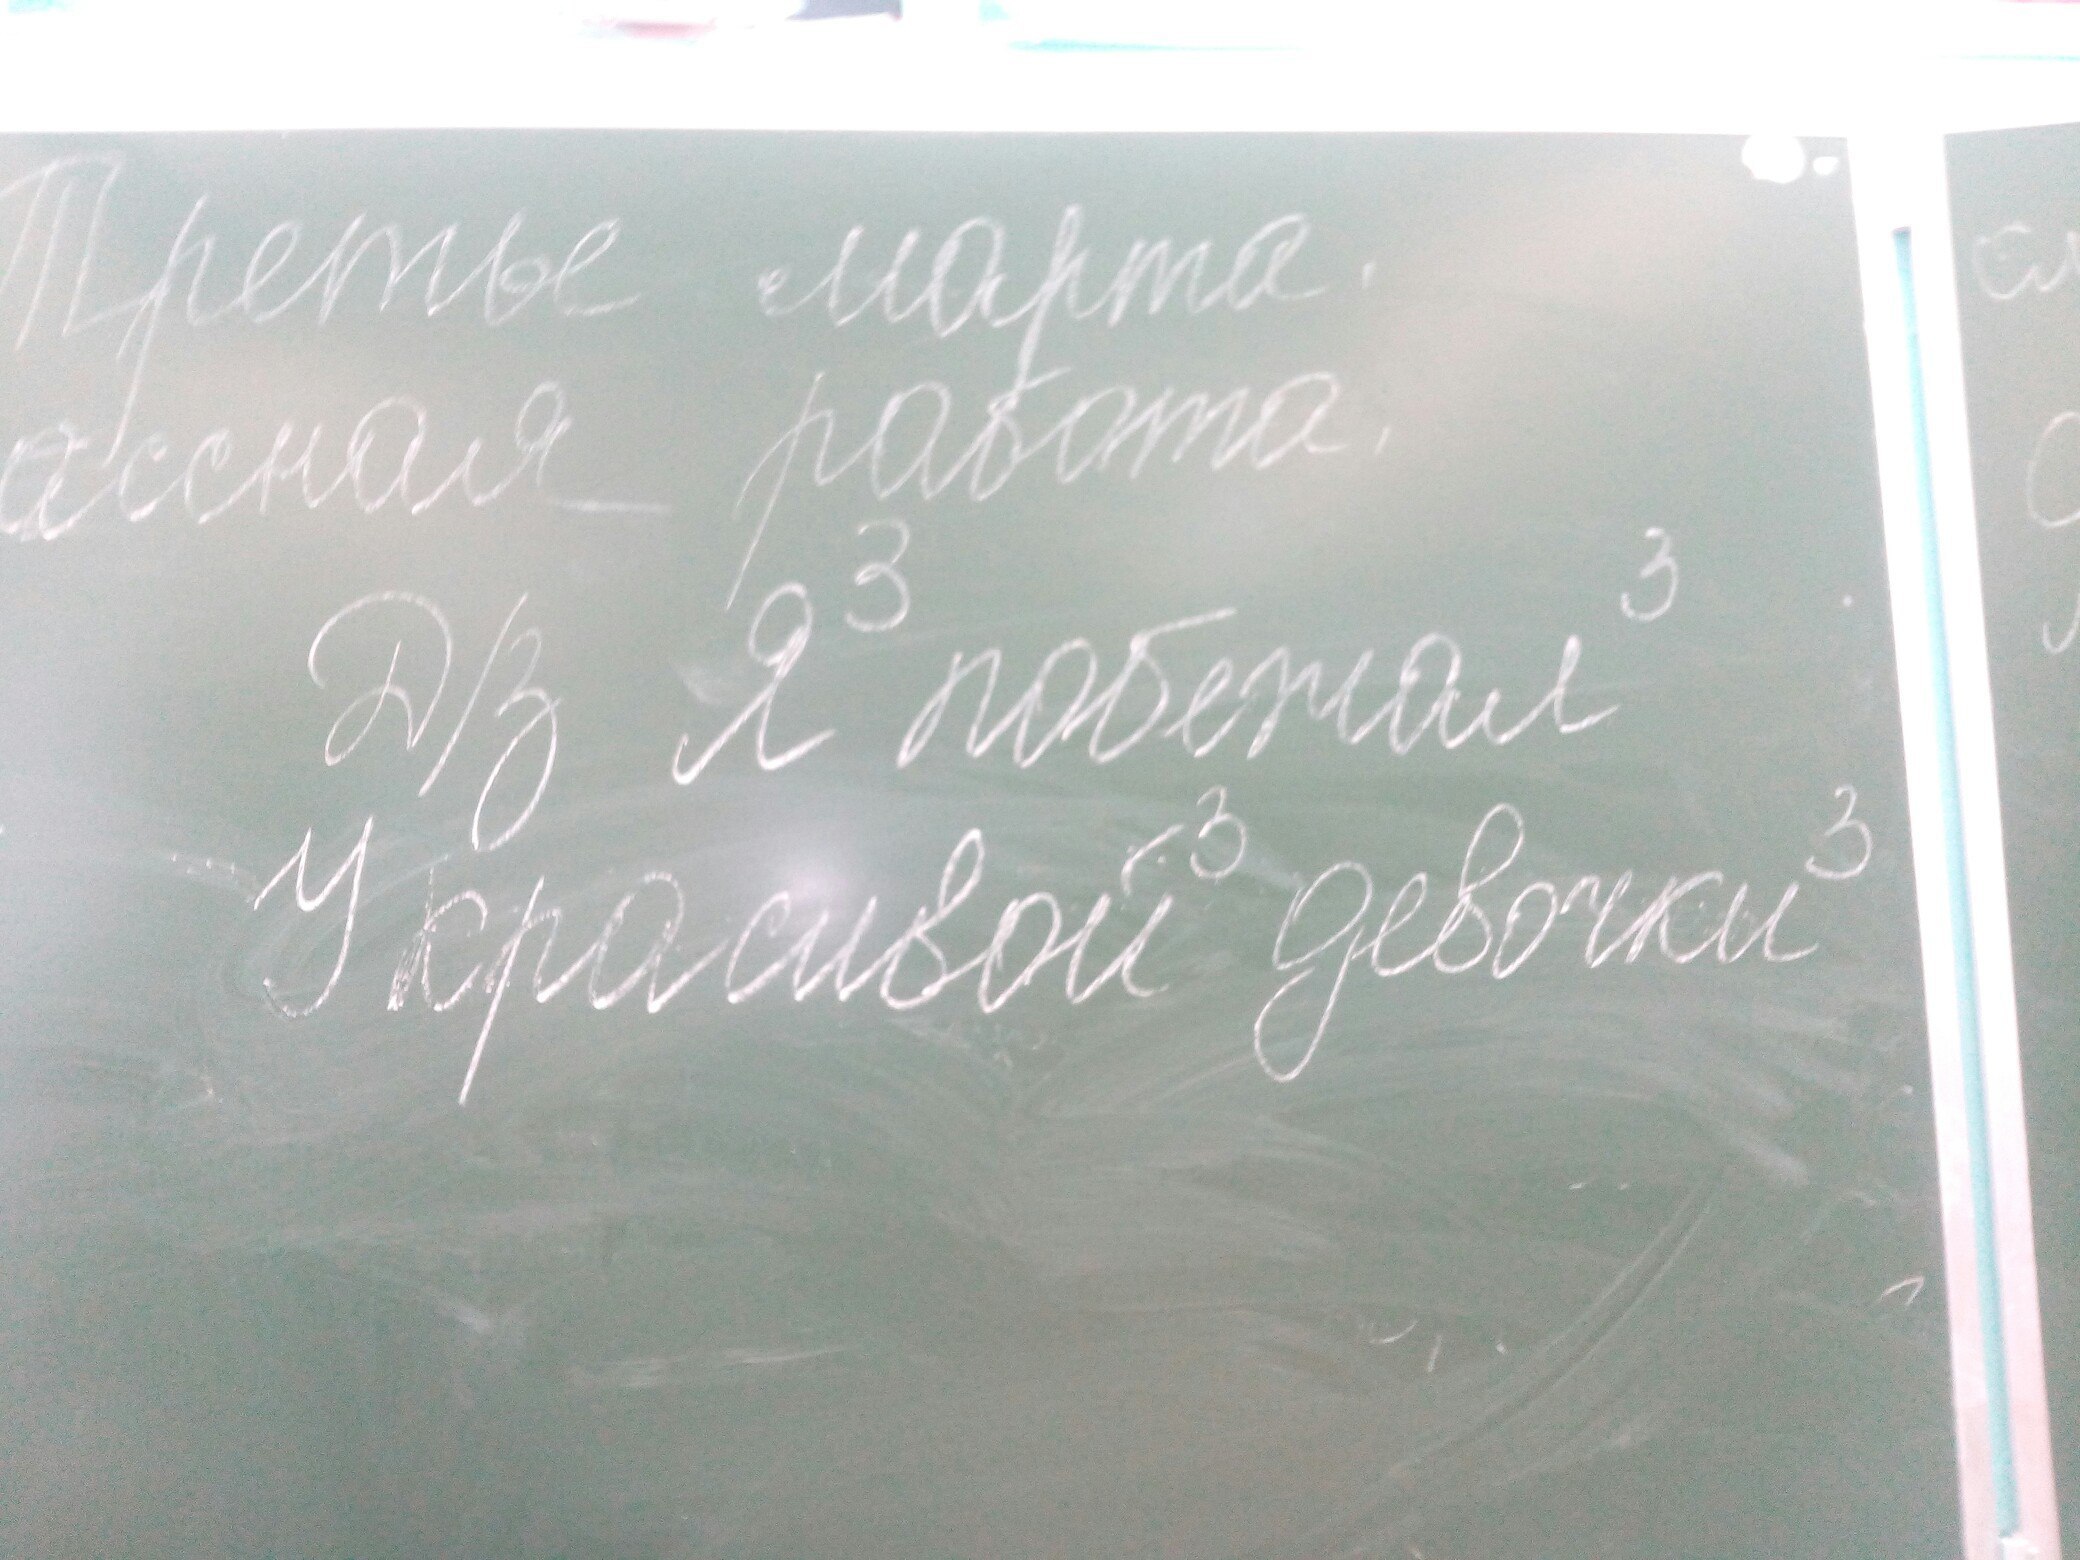 Третье марта.
ассная работа.
Д/з Я³ побежал³
У красивой³ девочки³